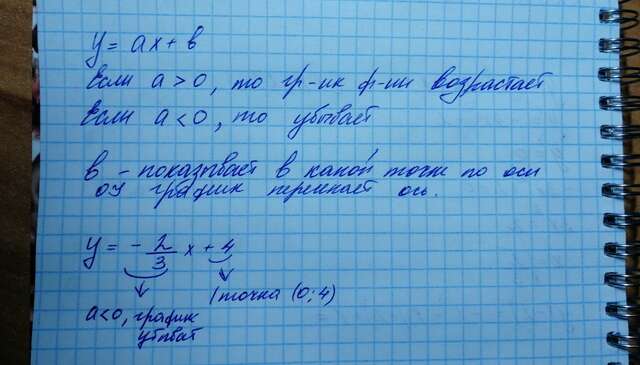 y = ax + в
Если a > 0, то гр-ик ф-ии возрастает
Если a < 0, то убывает
в - показывает в какой точке по оси
оу график пересекает ось.
y = - 2/3 x + 4
1 точка (0; 4)
a<0, график
убывает